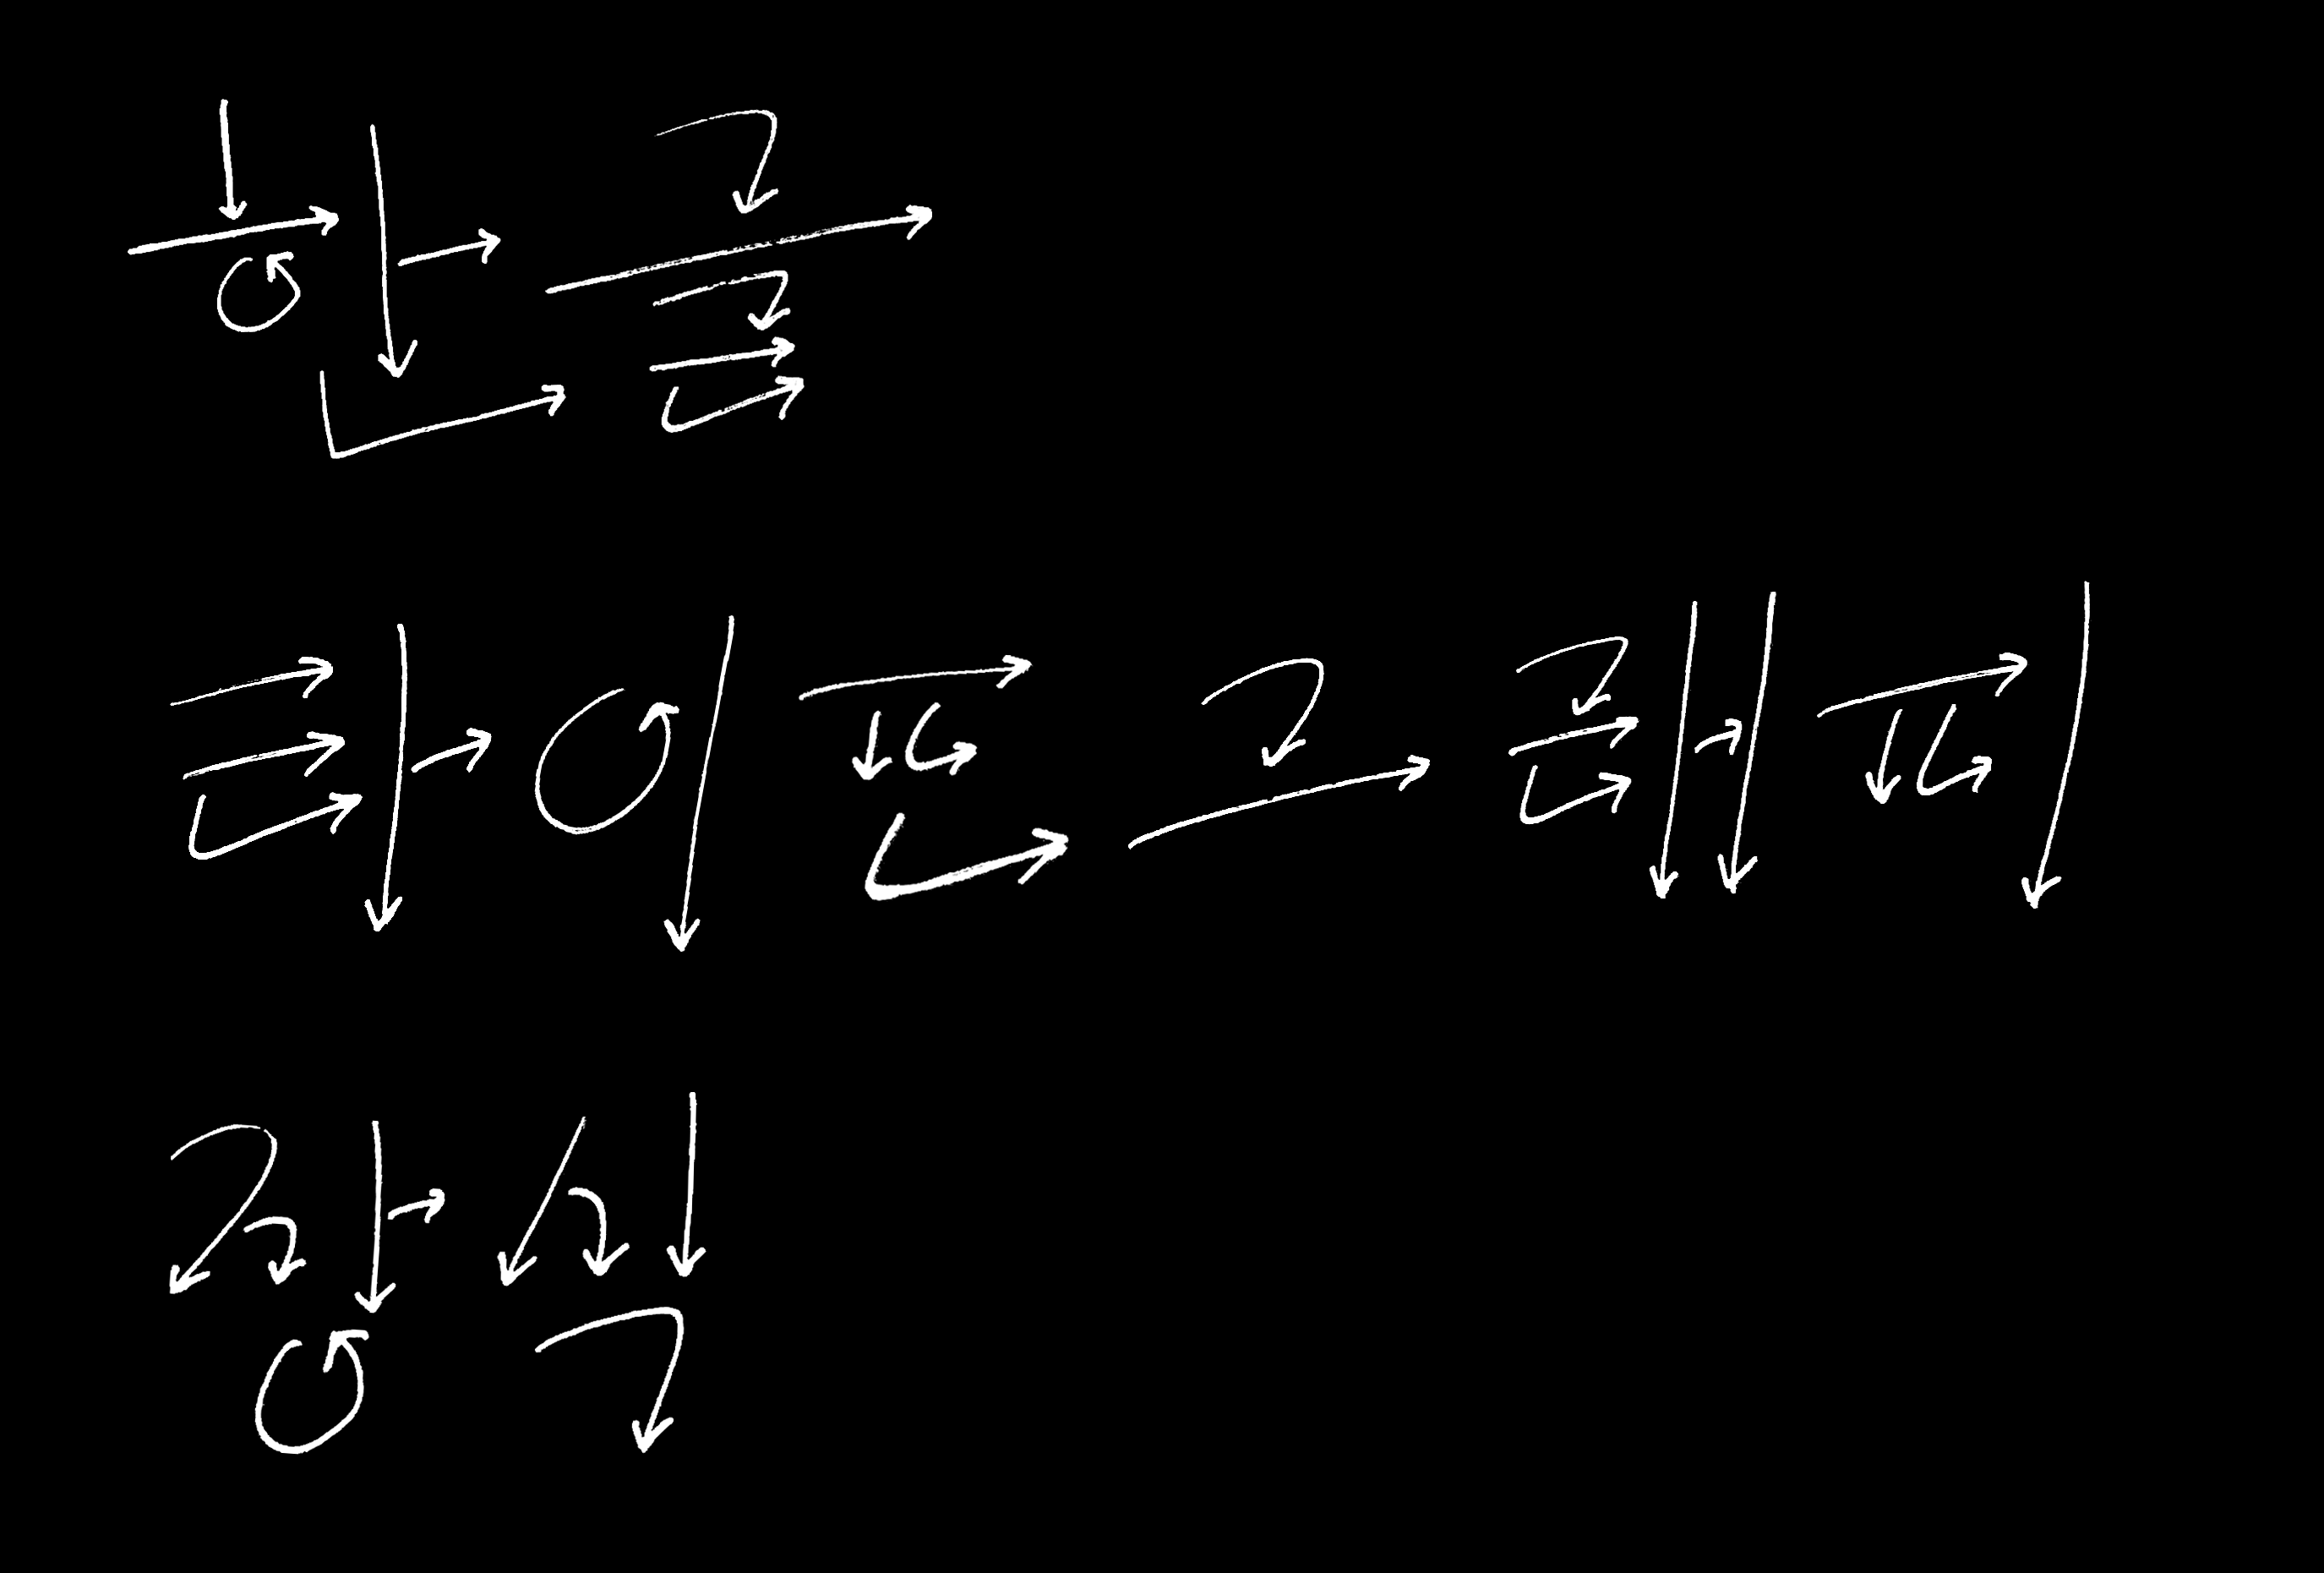 한글
타이포그래피
장식